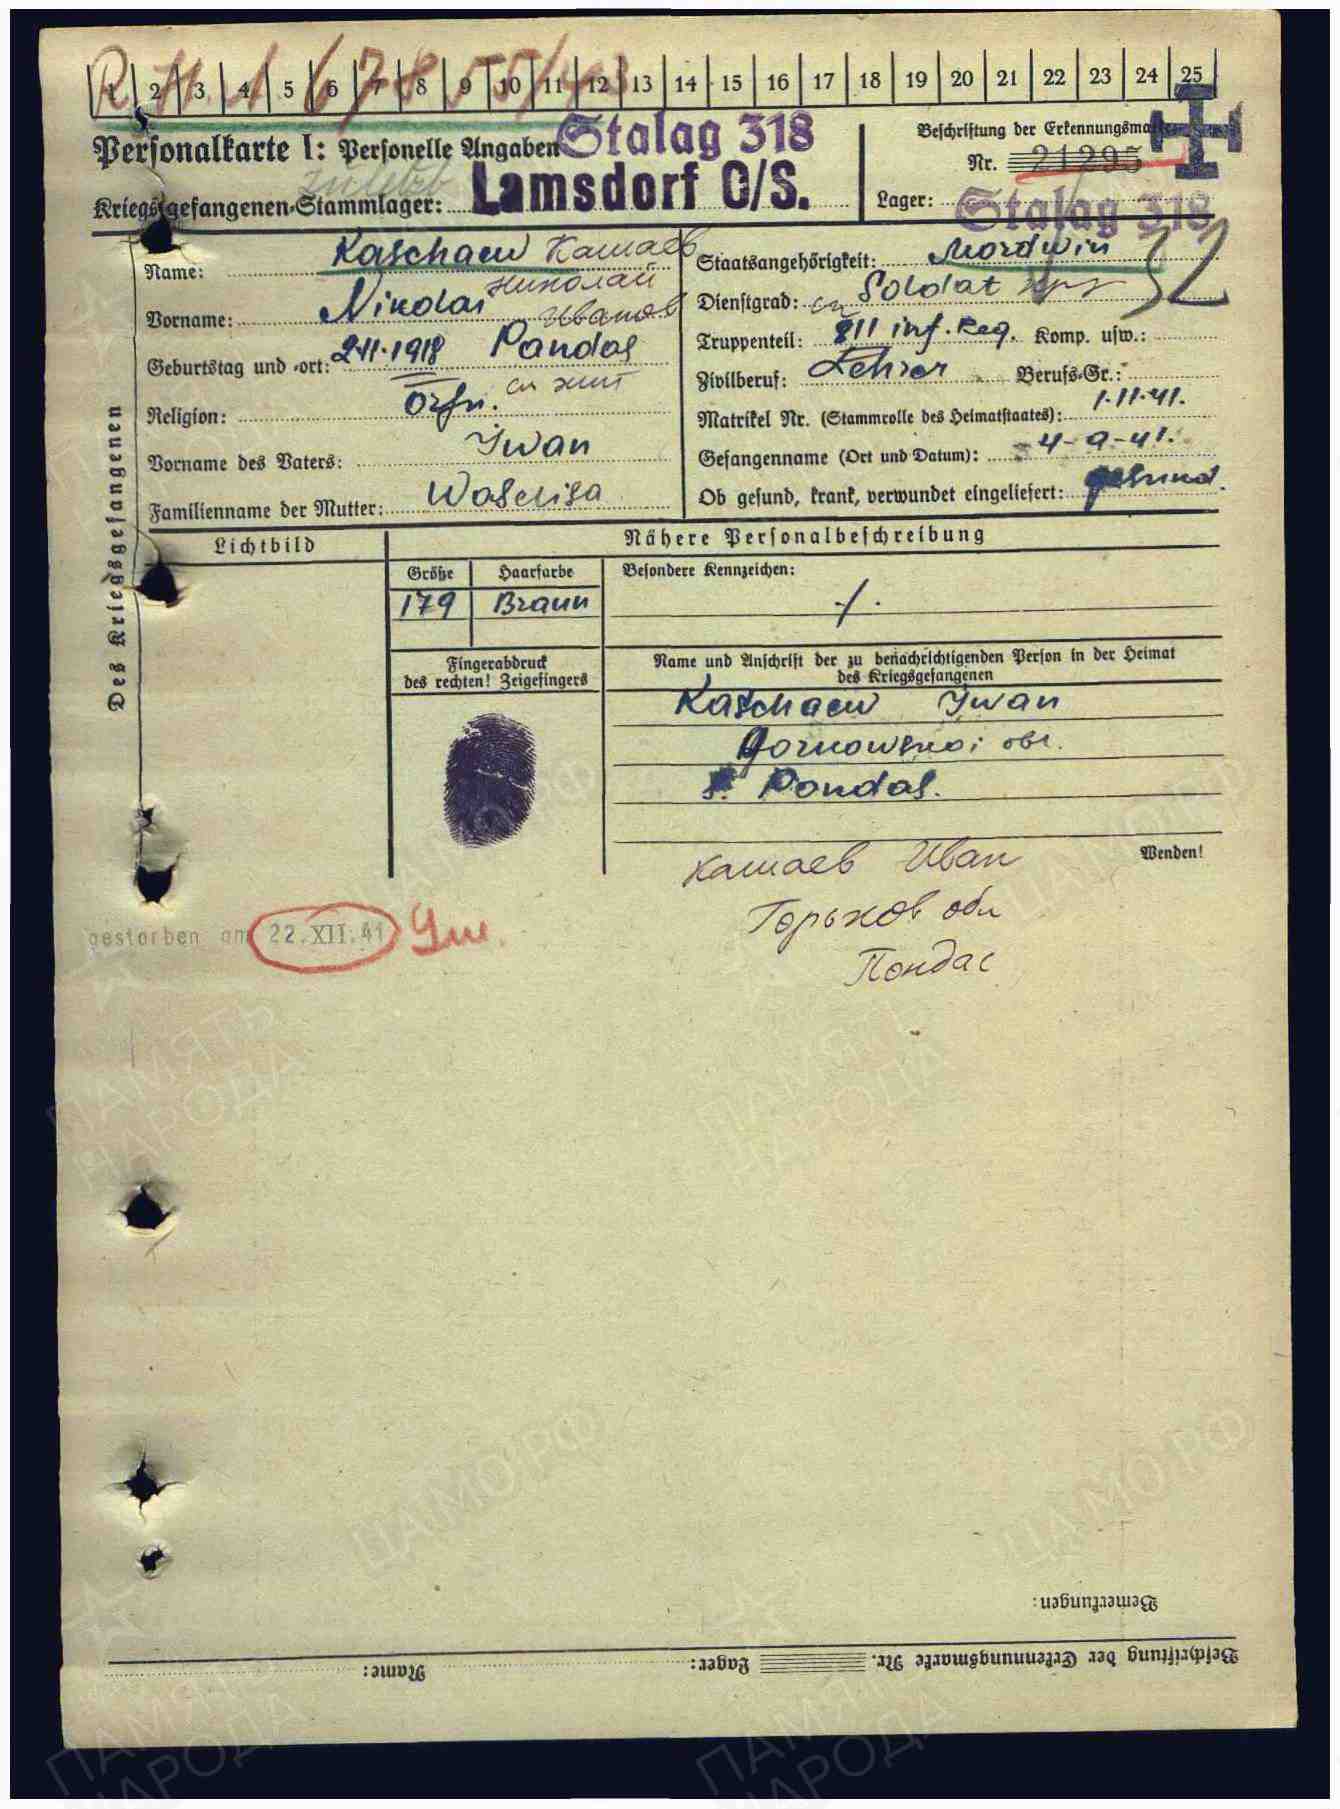 1 2 3 4 5 6 7 8 9 10 11 12 13 14 15 16 17 18 19 20 21 22 23 24 25
Personalkarte I: Personelle Angaben
Stalag 318
Beschriftung der Erkennungsmarke
Nr. 21295
Kriegsgefangenen-Stammlager: Lamsdorf O/S.
Lager: Stalag 318
Des Kriegsgefangenen
Name: Kaschaew Кашаев
Vorname: Nikolai Николай Иванов
Geburtstag und -ort: 2·11·1918 Pandas
Religion: Orfn.
Vorname des Vaters: Iwan
Familienname der Mutter: Waselisa
Staatsangehörigkeit: Mordwin
Dienstgrad: Soldat
Truppenteil: 811 inf. Reg. Komp. usw.:
Zivilberuf: Lehrer Berufs-Gr.:
Matrikel Nr. (Stammrolle des Heimatstaates): 1·11·41.
Gefangenname (Ort und Datum): 4-9-41.
Ob gesund, krank, verwundet eingeliefert: gesund.
Lichtbild
Nähere Personalbeschreibung
Größe Haarfarbe
179 Braun
Besondere Kennzeichen:
-/·
Fingerabdruck
des rechten! Zeigefingers
Name und Anschrift der zu benachrichtigenden Person in der Heimat
des Kriegsgefangenen
Kaschaew Iwan
Gornowskoi obl.
s. Pondas.
Wenden!
Кашаев Иван
Горьков обл
Пондас
gestorben am 22.XII.41
Bemerkungen:
Beschriftung der Erkennungsmarke Nr. Lager: Name:
ПАМЯТЬ НАРОДА
ЦАМО.РФ